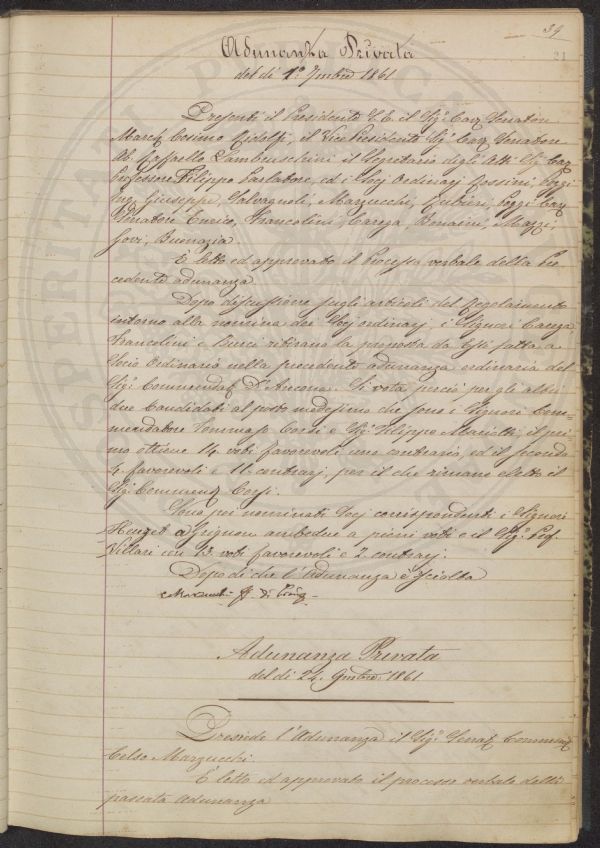 39
21
Adunanza Privata
del dì 1º 7mbre 1861
Presenti il Presidente S.E. il Sigr. Cav. Senatore
March. Cosimo Ridolfi, il Vice Presidente Sigr. Cav. Senatore
Ab. Raffaello Lambruschini il Segretario degli Atti Sigr. Cav.
Professore Filippo Parlatore, ed i Socj Ordinarj Rossini, Poggi
Giuseppe, Salvagnoli, Marzucchi, Rubieri, Poggi Cav.
Senatore Enrico, Francolini, Carega, Bonaini, Mazzi,
Govi, Buonazia.
È letto ed approvato il Processo verbale della Pre-
cedente adunanza
Dopo discussione sugli articoli del Regolamento
intorno alla nomina dei Socj ordinarj, i Signori Carega
Francolini e Burci ritirano la proposta da essi fatta a
Socio Ordinario nella precedente adunanza ordinaria del
Sigr. Commendat. D'Ancona. Si vota perciò per gli altri
due Candidati al posto medesimo che sono i Signori Com-
mendatore Tommaso Corsi e Sigr. Filippo Mariotti, il pri-
mo ottiene 14 voti favorevoli uno contrario, ed il secondo
4 favorevoli e 11 contrarj, per il che rimane eletto il
Sigr. Commend. Corsi.
Sono poi nominati Socj corrispondenti i Signori
Heuzet a Grignon ambedue a pieni voti e il Sigr. Prof.
Villari con 13 voti favorevoli e 2 contrarj.
Dopo di che l'Adunanza è sciolta
Adunanza Privata
del dì 24. 9mbre 1861
Presiede l'Adunanza il Sigr. Senat. Commend.
Celso Marzucchi.
È letto ed approvato il processo verbale della
passata adunanza